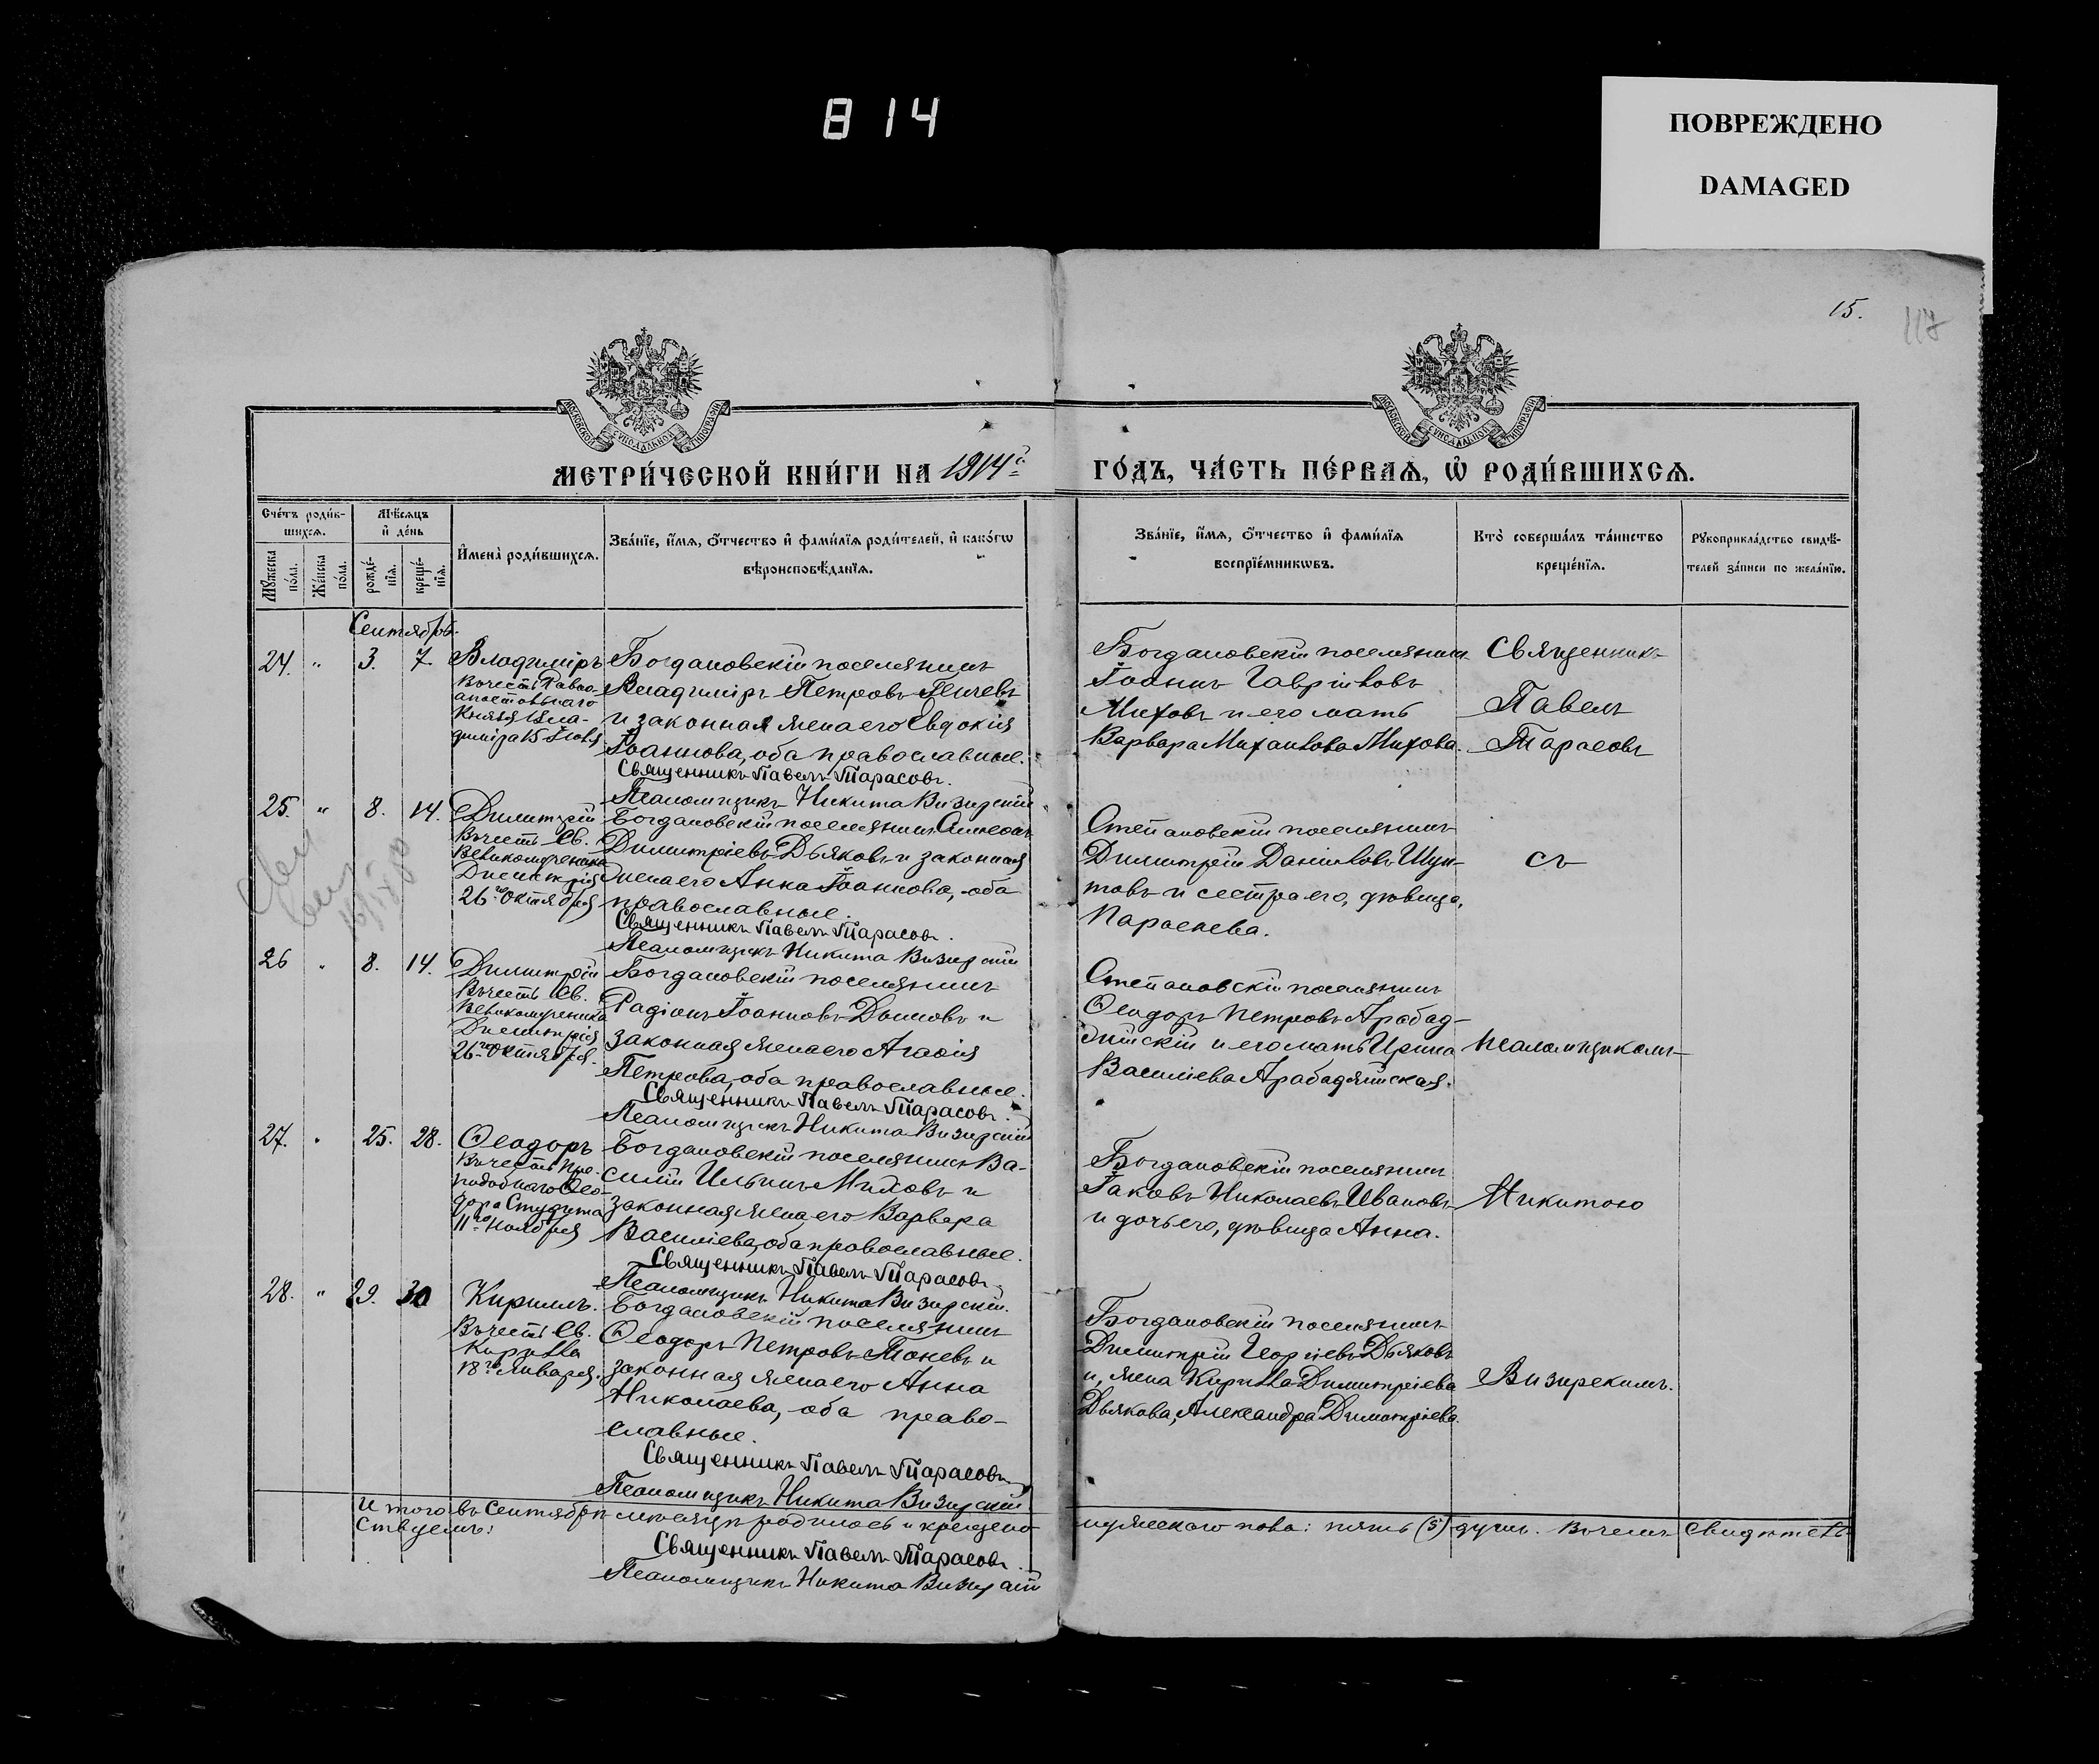 814
ПОВРЕЖДЕНО
DAMAGED
15.
117
МОСКОВСКОЙ СѴНОДАЛЬНОЙ ТИПОГРАФІИ
МОСКОВСКОЙ СѴНОДАЛЬНОЙ ТИПОГРАФІИ
МЕТРИ́ЧЕСКОЙ КНИ́ГИ НА 1914й
ГО́ДЪ, ЧА́СТЬ ПЕ́РВАѦ, Ѡ҆ РОДИ́ВШИХСѦ.
Сче́тъ роди́в-
шихсѧ.
Мѣ́сѧцъ
и҆ де́нь
Мꙋ́жеска по́ла.
Же́нска по́ла.
рожде́-нїѧ.
креще́-нїѧ.
И҆мена̀ роди́вшихсѧ.
Зва́нїе, и҆́мѧ, ѻ҆́тчество и҆ фами́лїѧ роди́телей, и҆ како́гѡ
вѣроисповѣ́данїѧ.
Зва́нїе, и҆́мѧ, ѻ҆́тчество и҆ фами́лїѧ
воспрїе́мникѡвъ.
Кто̀ соверша́лъ та́инство
креще́нїѧ.
Рꙋкоприкла́дство свидѣ́-
телей за́писи по жела́нїю.
Сентябрь.
24. " 3. 7. Владиміръ
Въ честь Равно-
апостольнаго
Князя Вла-
диміра 15 Іюля
Богдановскій поселянинъ
Владиміръ Петровъ Генчевъ
и законная жена его Евдокія
Іоаннова, оба православные.
Священникъ Павелъ Тарасовъ.
Псаломщикъ Никита Визирскій
Богдановскій поселянин
Іоаннъ Гавріиловъ
Миховъ и его мать
Варвара Михаилова Михова.
Священникъ
Павелъ
Тарасовъ
25. " 8. 14. Димитрій
Въ честь Св.
Великомученика
Димитрія
26го Октября
Богдановскій поселянинъ Симеонъ
Димитріевъ Дьяковъ и законная
жена его Анна Іоаннова, оба
православные.
Священникъ Павелъ Тарасовъ.
Псаломщикъ Никита Визирскій
Степановскій поселянинъ
Димитрій Даніиловъ Шун-
товъ и сестра его, дѣвица,
Параскева.
съ
26 " 8. 14. Димитрій
Въ честь Св.
Великомученика
Димитрія
26го Октября.
Богдановскій поселянинъ
Радіонъ Іоанновъ Димовъ и
законная жена его Агафія
Петрова, оба православные.
Священникъ Павелъ Тарасовъ.
Псаломщикъ Никита Визирскій
Степановскій поселянинъ
Ѳеодоръ Петровъ Арабад-
жійскій и его мать Ирина
Василіева Арабаджійская.
псаломщикомъ
27. " 25. 28. Ѳеодоръ
Въ честь Пре-
подобнаго Ѳео-
дора Студита
11го Ноября
Богдановскій поселянинъ Ва-
силій Ильинъ Миховъ и
законная жена его Варвара
Василіева, оба православные.
Священникъ Павелъ Тарасовъ.
Псаломщикъ Никита Визирскій.
Богдановскій поселянинъ
Іаковъ Николаевъ Ивановъ
и дочь его, дѣвица Анна.
Никитою
28. " 29. 30 Кириллъ.
Въ честь Св.
Кирилла
18го Января.
Богдановскій поселянинъ
Ѳеодоръ Петровъ Тоневъ и
законная жена его Анна
Николаева, оба право-
славные.
Священникъ Павелъ Тарасовъ
Псаломщикъ Никита Визирскій
Богдановскій поселянинъ
Димитрій Георгіевъ Дьяковъ
и, жена Кирилла Димитріева
Дьякова, Александра Димитріева.
Визирскимъ.
Итого въ Сентябрѣ мѣсяцѣ родилось и крещено мужескаго пола: пять (5) душъ. Въ чемъ свидѣтель-
ствуемъ:
Священникъ Павелъ Тарасовъ.
Псаломщикъ Никита Визирскій